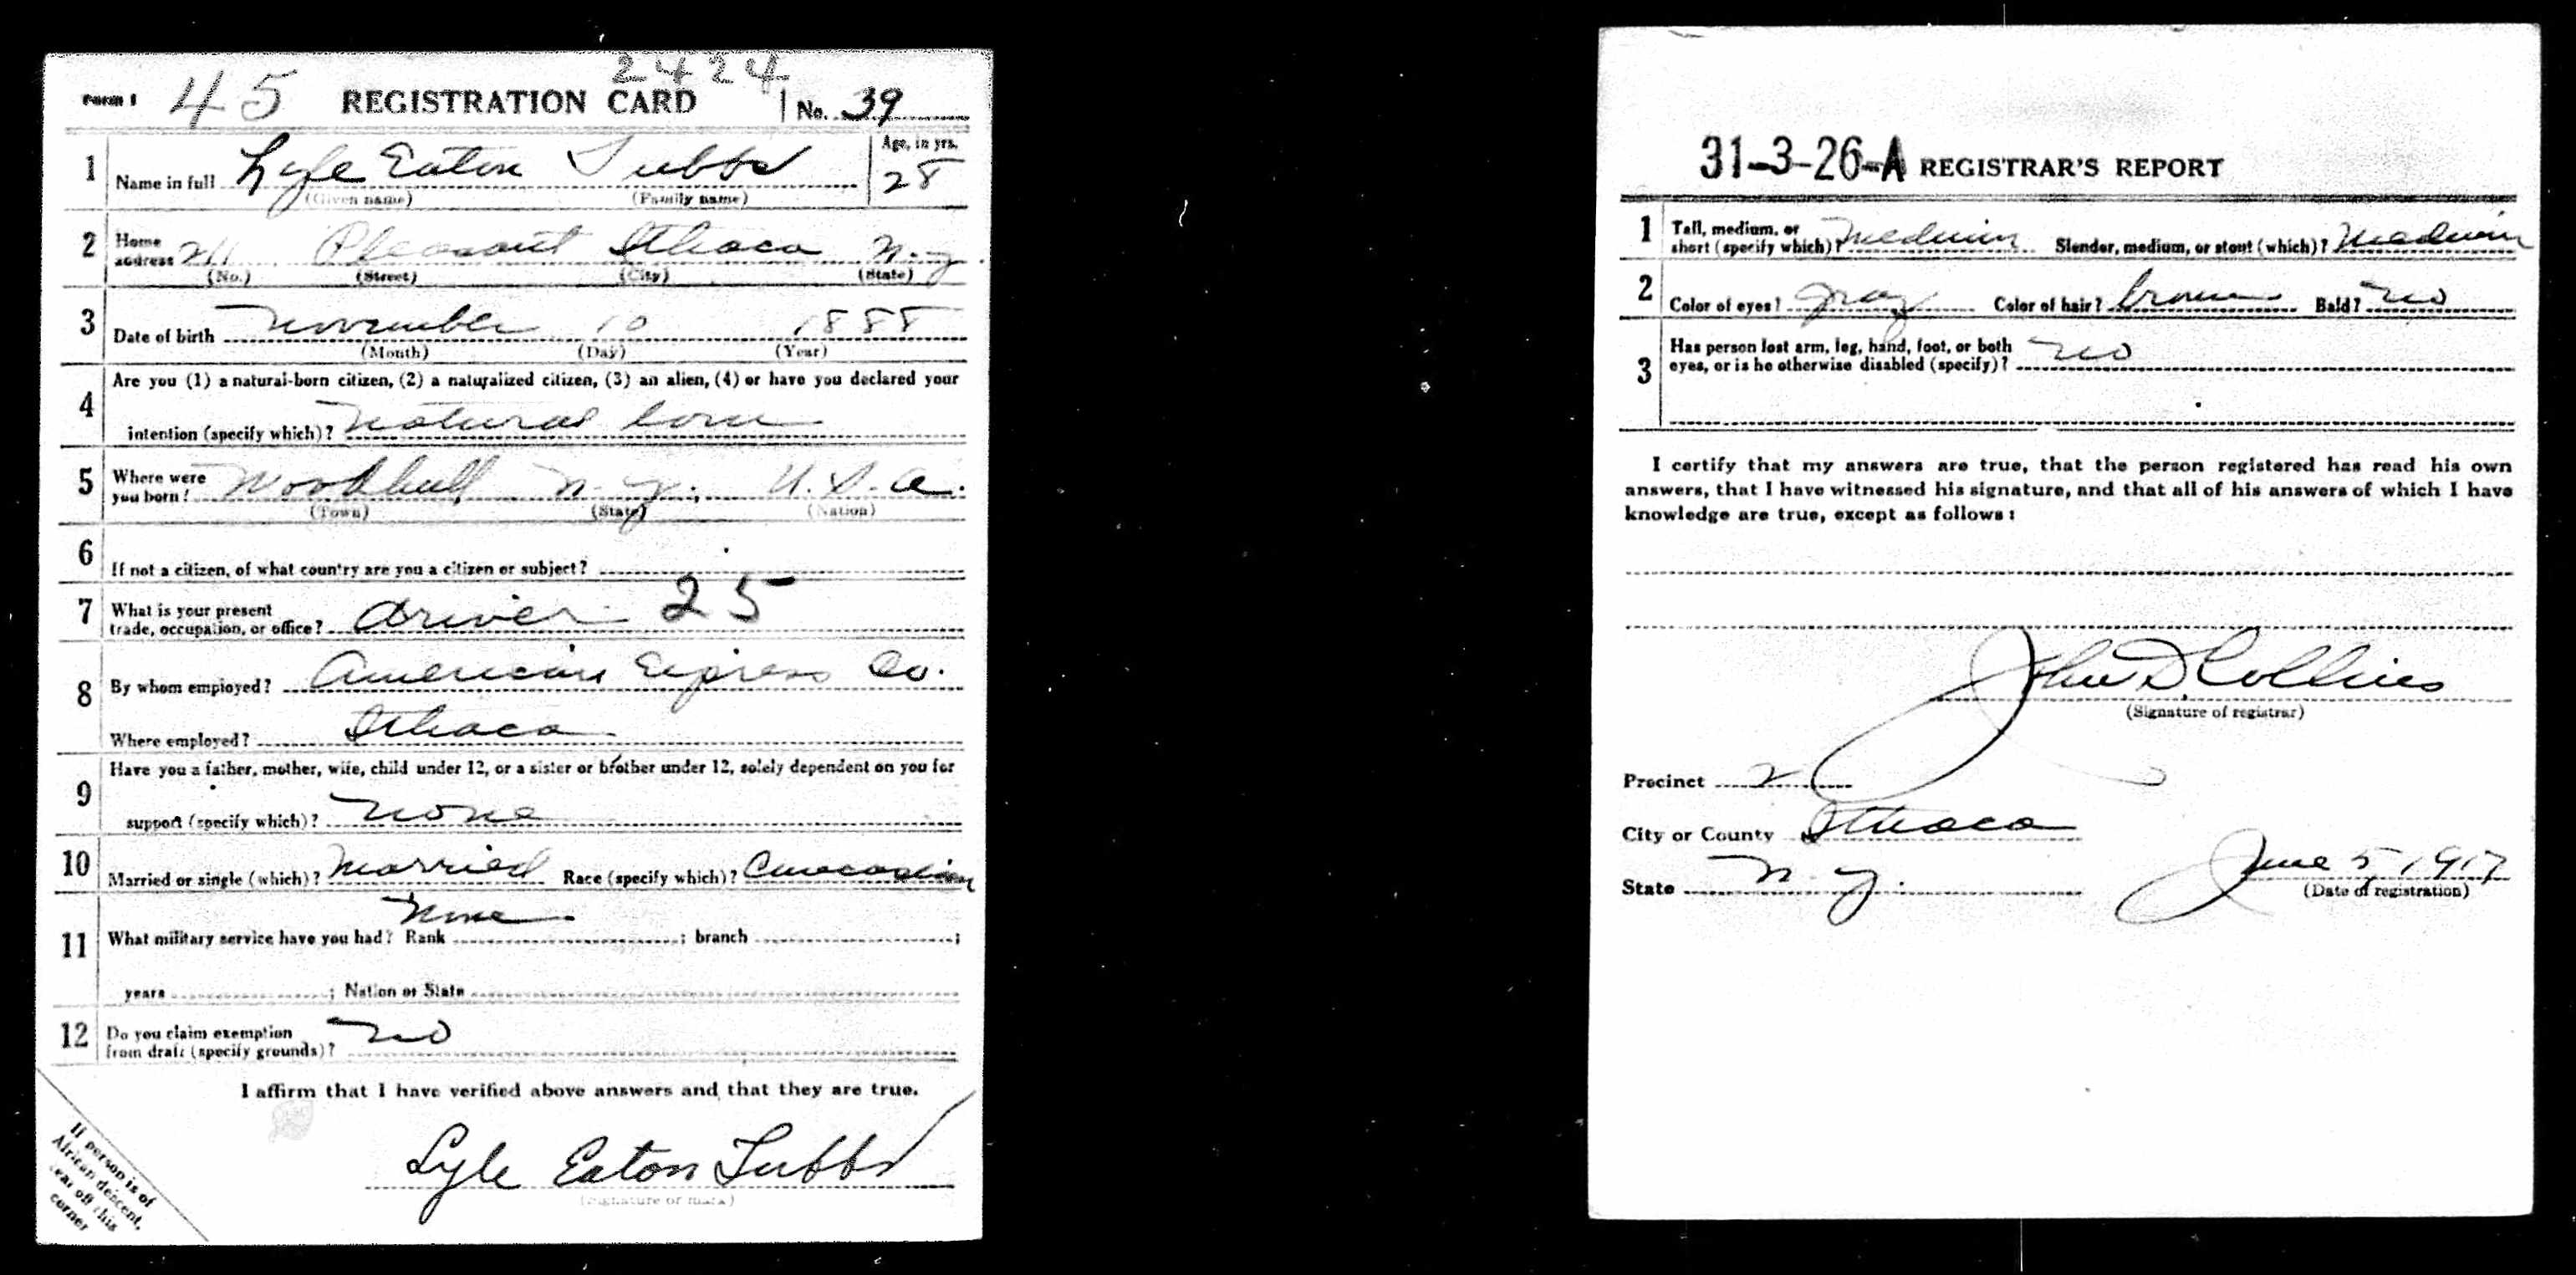 2424
Form 1 45 REGISTRATION CARD No. 39
1 Name in full Lyle Eaton Tubbs Age, in yrs. 28
(Given name) (Family name)
2 Home address 211 Pleasant Ithaca N.Y.
(No.) (Street) (City) (State)
3 Date of birth November 10 1888
(Month) (Day) (Year)
4 Are you (1) a natural-born citizen, (2) a naturalized citizen, (3) an alien, (4) or have you declared your
intention (specify which)? Natural born
5 Where were you born? Woodhull N.Y. U.S.A.
(Town) (State) (Nation)
6 If not a citizen, of what country are you a citizen or subject?
7 What is your present trade, occupation, or office? driver 25
8 By whom employed? American Express Co.
Where employed? Ithaca
9 Have you a father, mother, wife, child under 12, or a sister or brother under 12, solely dependent on you for
support (specify which)? None
10 Married or single (which)? Married Race (specify which)? Caucasian
None
11 What military service have you had? Rank ; branch ;
years ; Nation or State
12 Do you claim exemption from draft (specify grounds)? No
I affirm that I have verified above answers and that they are true.
Lyle Eaton Tubbs
(Signature or mark)
If person is of
African descent,
tear off this
corner
31-3-26-A REGISTRAR'S REPORT
1 Tall, medium, or short (specify which)? Medium Slender, medium, or stout (which)? Medium
2 Color of eyes? gray Color of hair? brown Bald? No
3 Has person lost arm, leg, hand, foot, or both eyes, or is he otherwise disabled (specify)? No
I certify that my answers are true, that the person registered has read his own
answers, that I have witnessed his signature, and that all of his answers of which I have
knowledge are true, except as follows:
John D. Collins
(Signature of registrar)
Precinct 2
City or County Ithaca
State N.Y. June 5, 1917
(Date of registration)